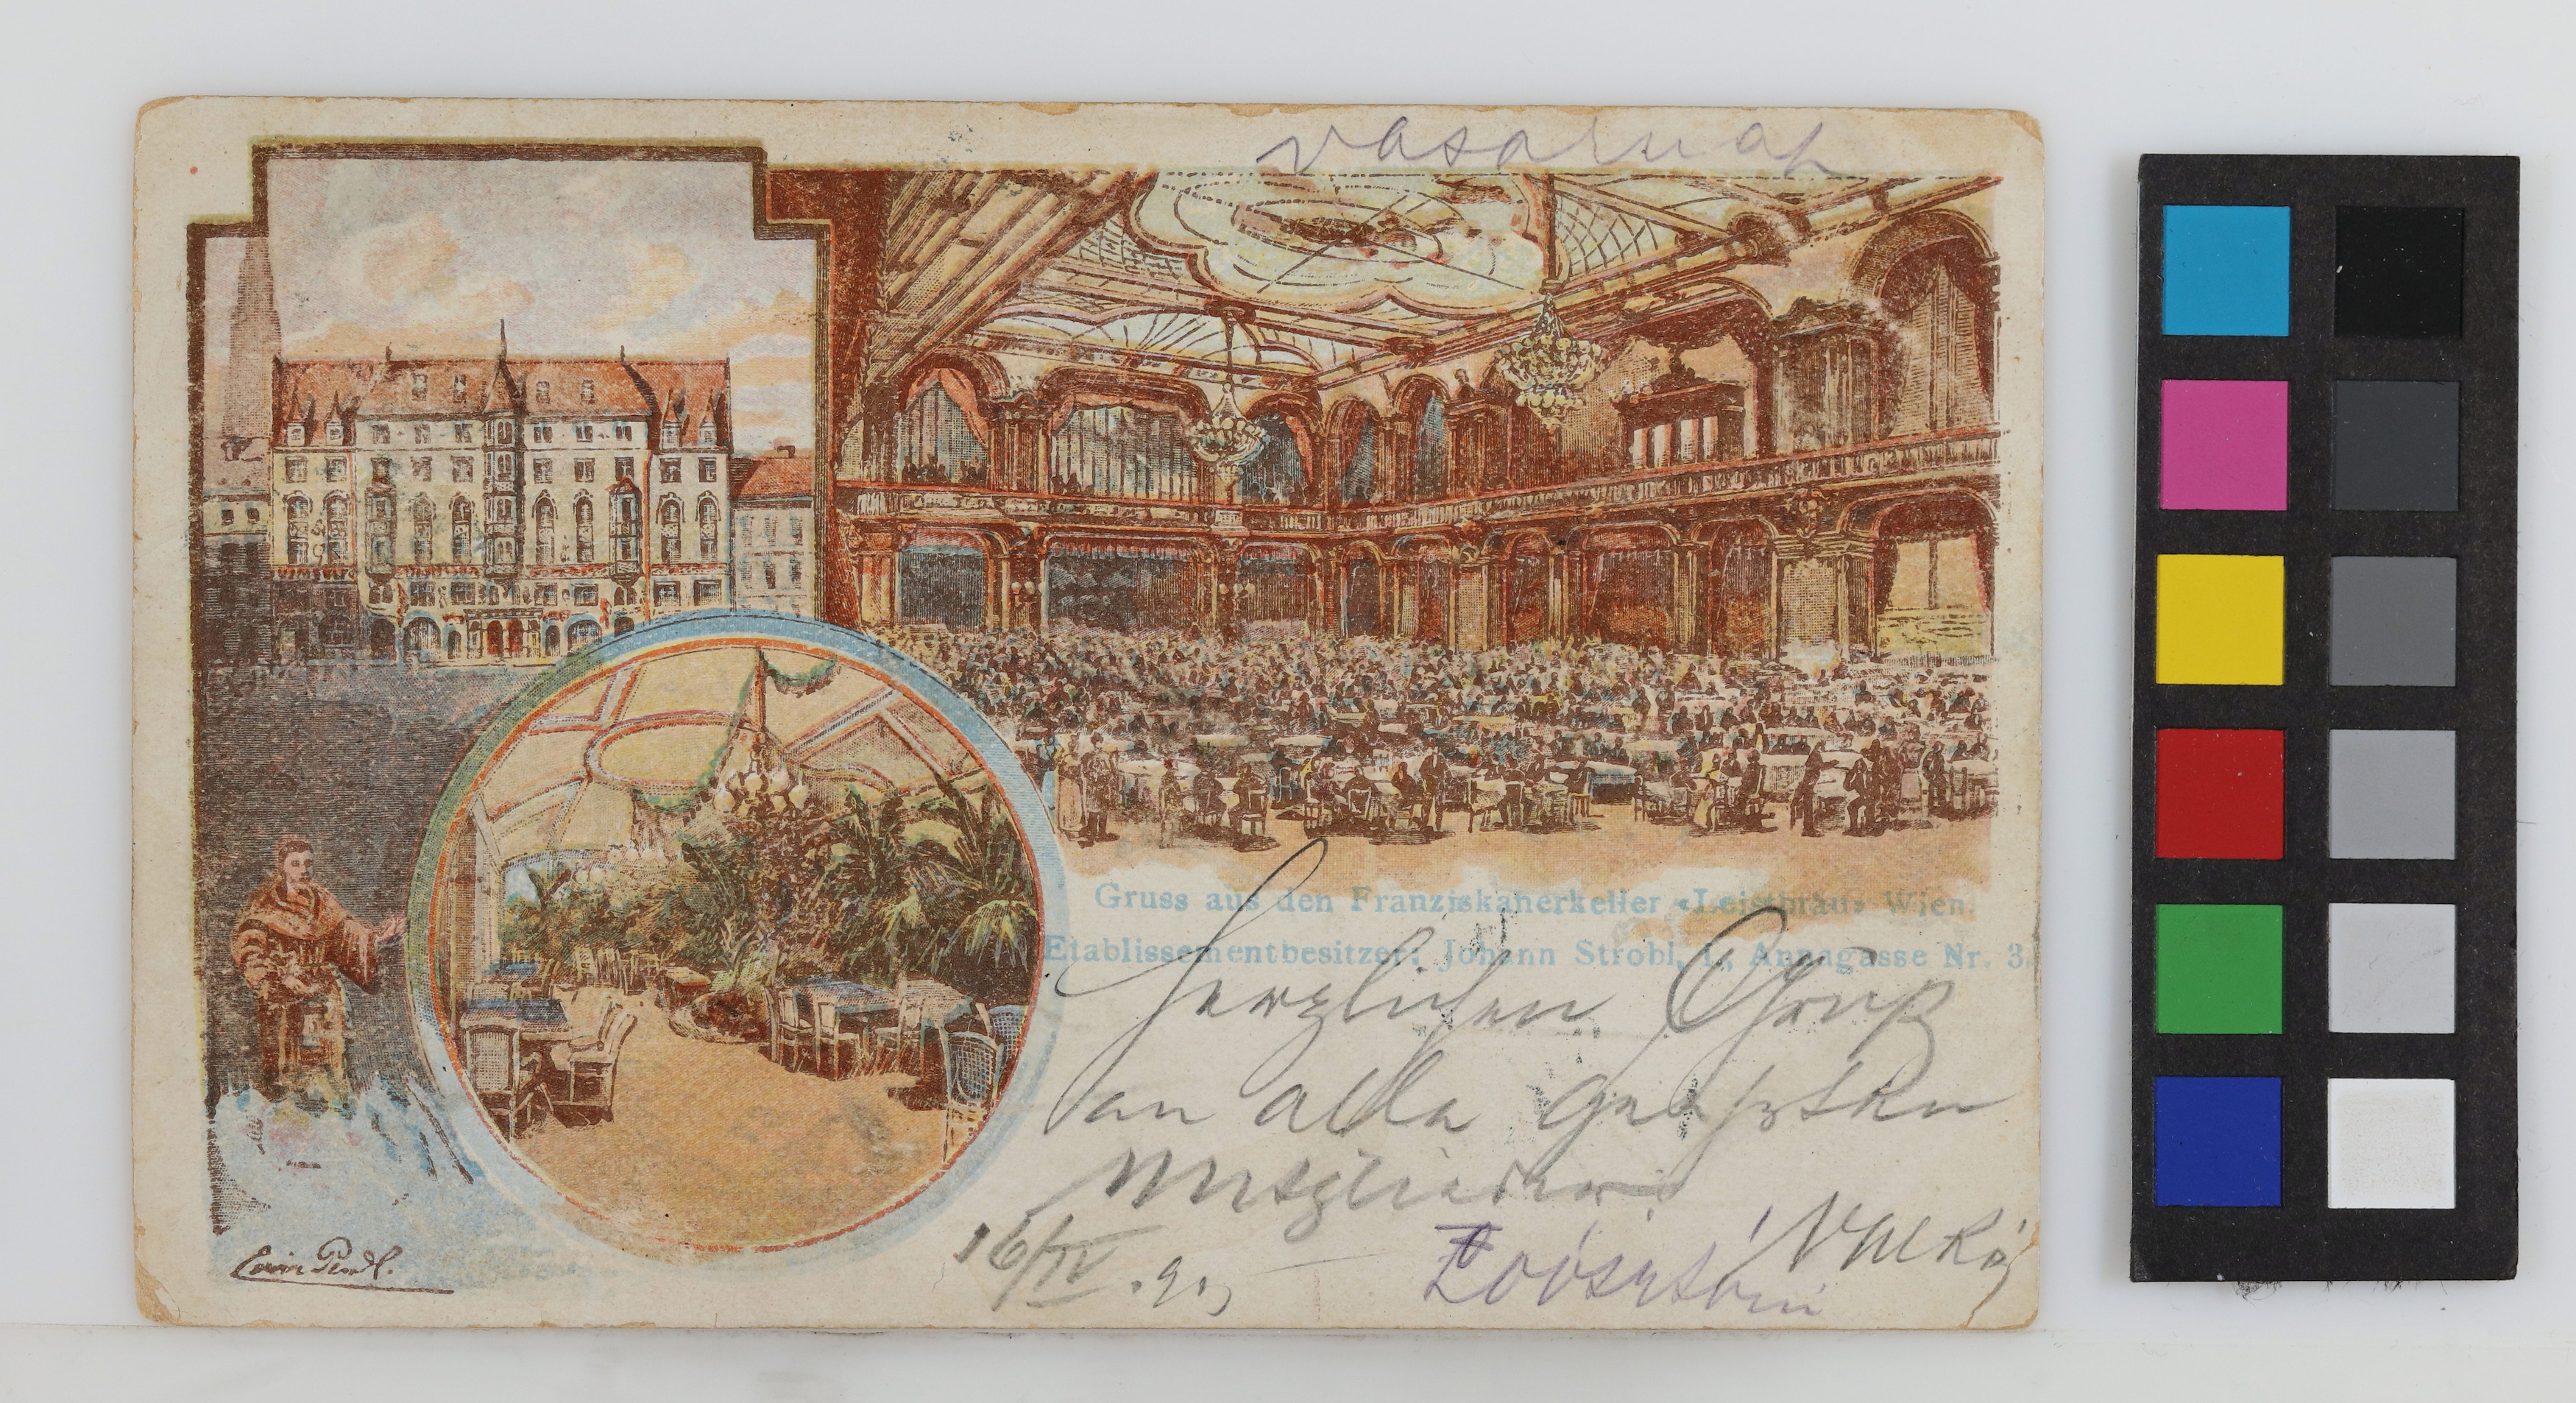 vasárnap
Gruss aus den Franziskanerkeller «Leistbräu» Wien.
Etablissementbesitzer: Johann Strobl, I., Annagasse Nr. 3.
Herzlichen Gruß
an alle geehrten
Mitglieder
16/IV
Erwin Pendl.